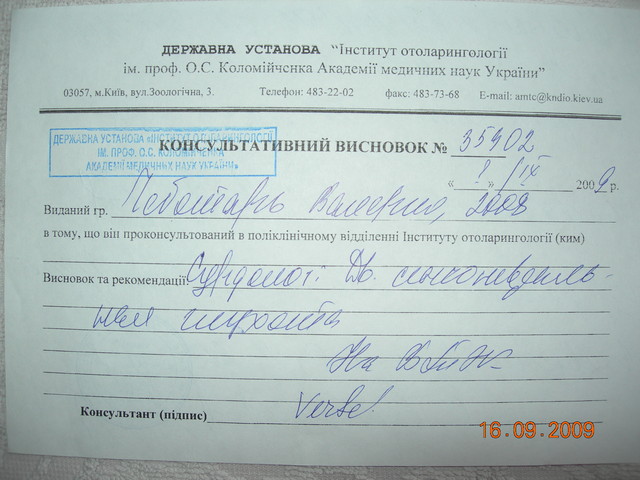 ДЕРЖАВНА УСТАНОВА “Інститут отоларингології
ім. проф. О.С. Коломійченка Академії медичних наук України”
03057, м.Київ, вул.Зоологічна, 3. Телефон: 483-22-02 факс: 483-73-68 E-mail: amtc@kndio.kiev.ua
ДЕРЖАВНА УСТАНОВА «ІНСТИТУТ ОТОЛАРИНГОЛОГІЇ
ІМ. ПРОФ. О.С. КОЛОМІЙЧЕНКА
АКАДЕМІЇ МЕДИЧНИХ НАУК УКРАЇНИ»
КОНСУЛЬТАТИВНИЙ ВИСНОВОК № 35902
« 1 » /IX 2009 р.
Виданий гр. Чеботарь Валерию, 2008
в тому, що він проконсультований в поліклінічному відділенні Інституту отоларингології (ким)
Висновок та рекомендації Сурдолог: Дв. сенсоневраль-
ная глухота
На
Консультант (підпис)
16.09.2009